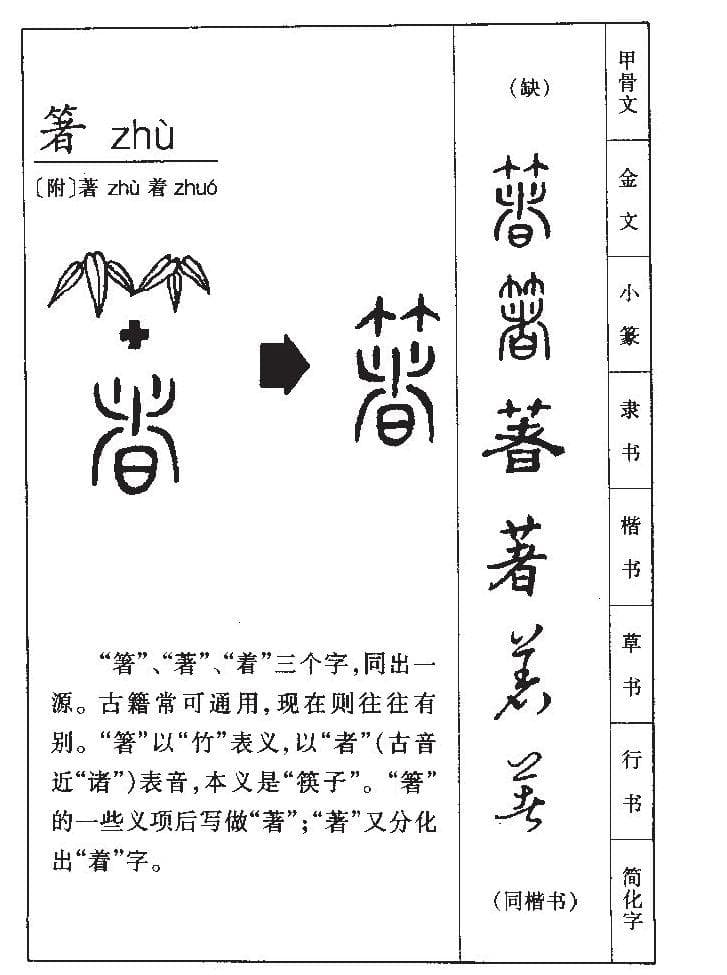 箸 zhù
〔附〕著 zhù 着 zhuó
“箸”、“著”、“着”三个字,同出一
源。古籍常可通用,现在则往往有
别。“箸”以“竹”表义,以“者”(古音
近“诸”)表音,本义是“筷子”。“箸”
的一些义项后写做“著”;“著”又分化
出“着”字。
甲骨文
(缺)
金文
箸
小篆
箸
隶书
著
楷书
著
草书
行书
简化字
(同楷书)